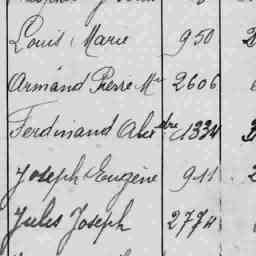 Louis Marie 950
Armand Pierre Mie 2606
Ferdinand Alexdre 1334
Joseph Eugène 911
Jules Joseph 2774